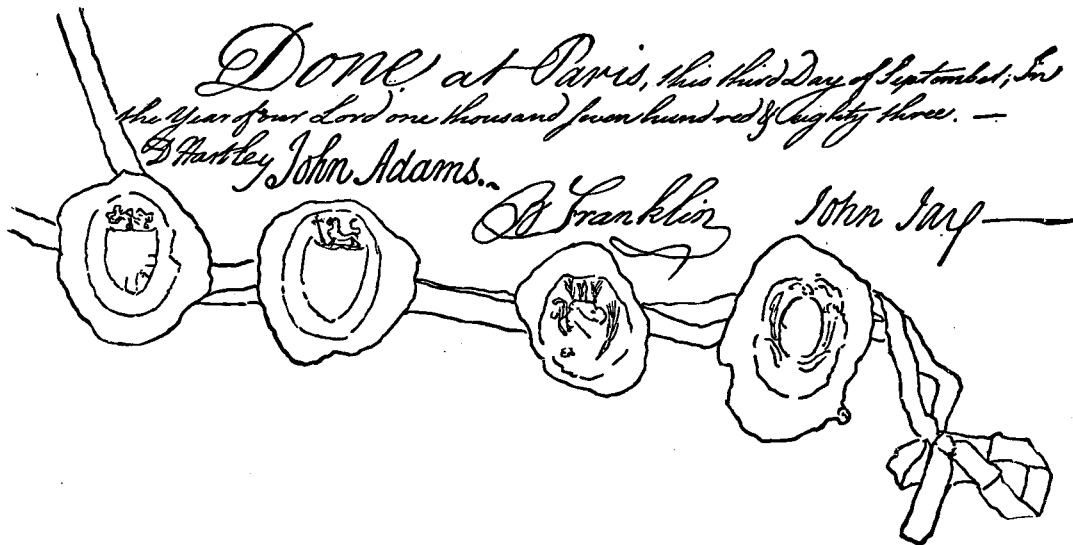 Done at Paris, this third Day of September; In
the Year of our Lord one thousand seven hundred & eighty three. —
D Hartley John Adams..
B Franklin John Jay —